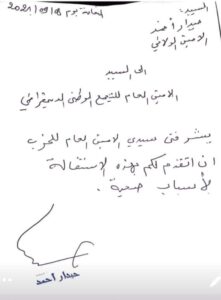 السيد:
حيدار أحمد
الأمين الولائي
2021/09/08
الى السيد
الأمين العام للتجمع الوطني الديمقراطي
يشرفني سيدي الأمين العام للحزب
ان اتقدم لكم بهذه الاستقالة
لأسباب صحية.
حيدار أحمد